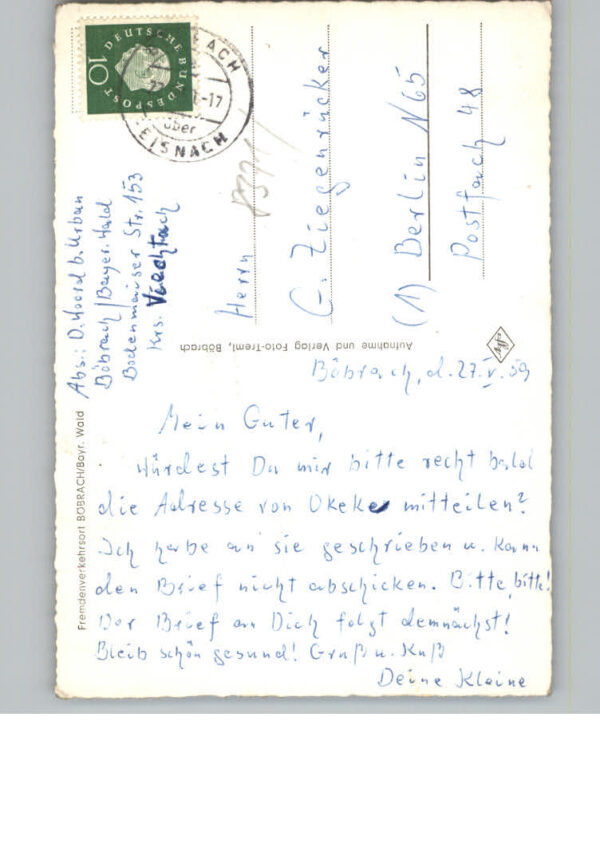 DEUTSCHE BUNDESPOST
10
über
EISNACH
Abs.: D. b. Urban
Böbrach/Bayer. Wald
Bodenmaiser Str. 153
Krs. Viechtach
Herrn
G. Ziegenrücker
(1) Berlin N65
Postfach 48
Aufnahme und Verlag Foto-Treml, Böbrach
Fremdenverkehrsort BÖBRACH/Bayr. Wald
Böbrach, d. 27.V.59
Mein Guter,
würdest Du mir bitte recht bald
die Adresse von Okeke mitteilen?
Ich habe an sie geschrieben u. kann
den Brief nicht abschicken. Bitte, bitte!
Der Brief an Dich folgt demnächst!
Bleib schön gesund! Gruß u. Kuß
Deine Kleine